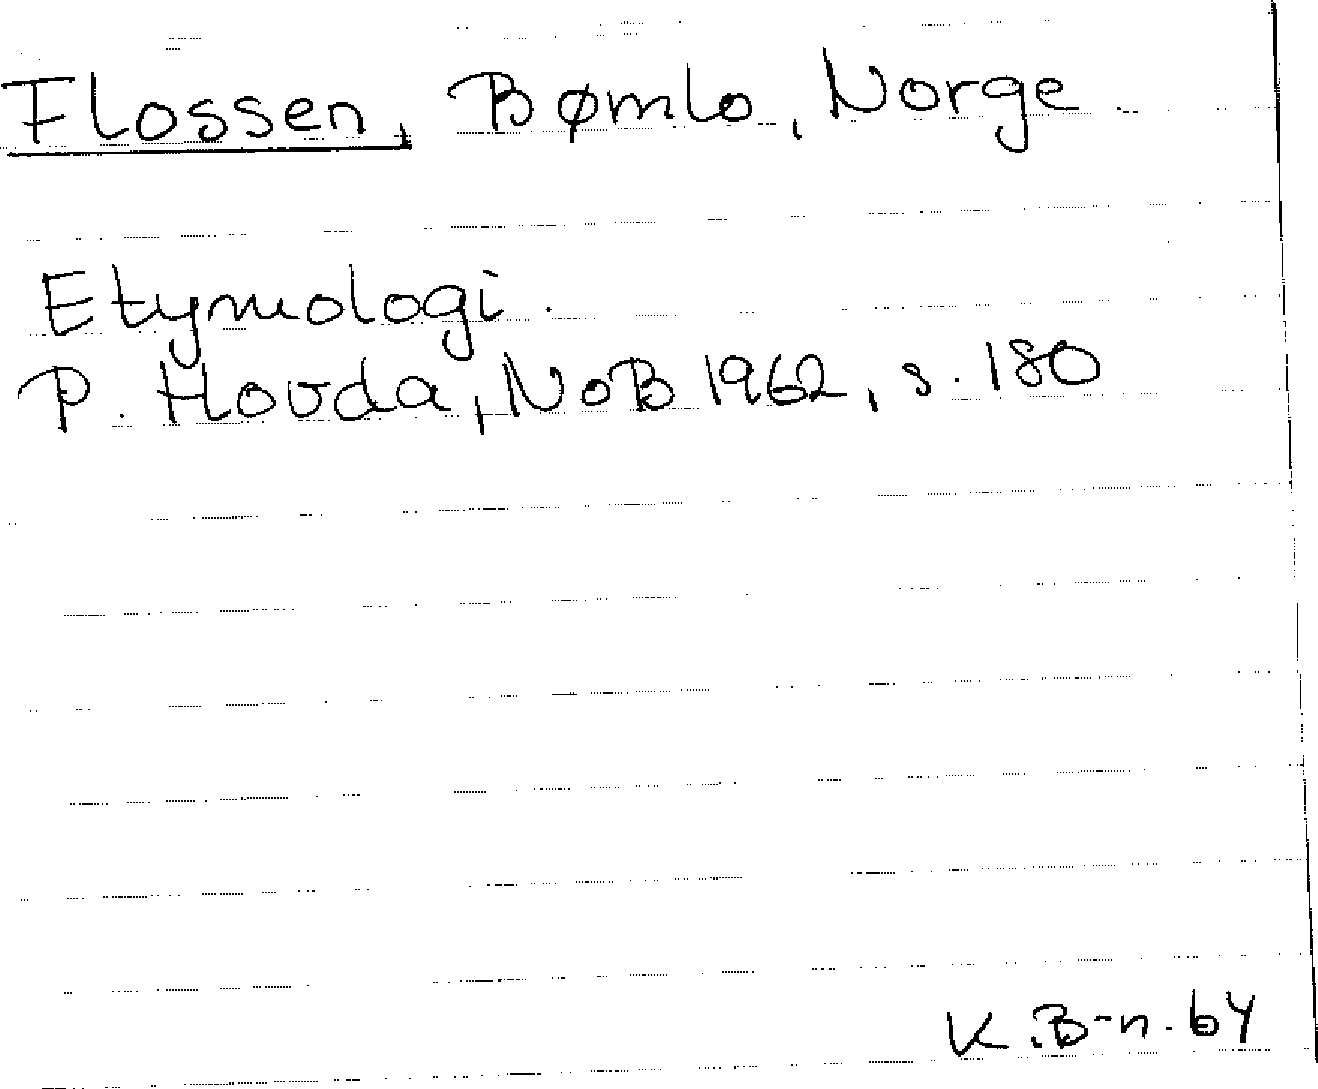 Flossen, Bømlo, Norge
Etymologi.
P. Hovda, NoB 1962, s. 180
K.B-n. 64